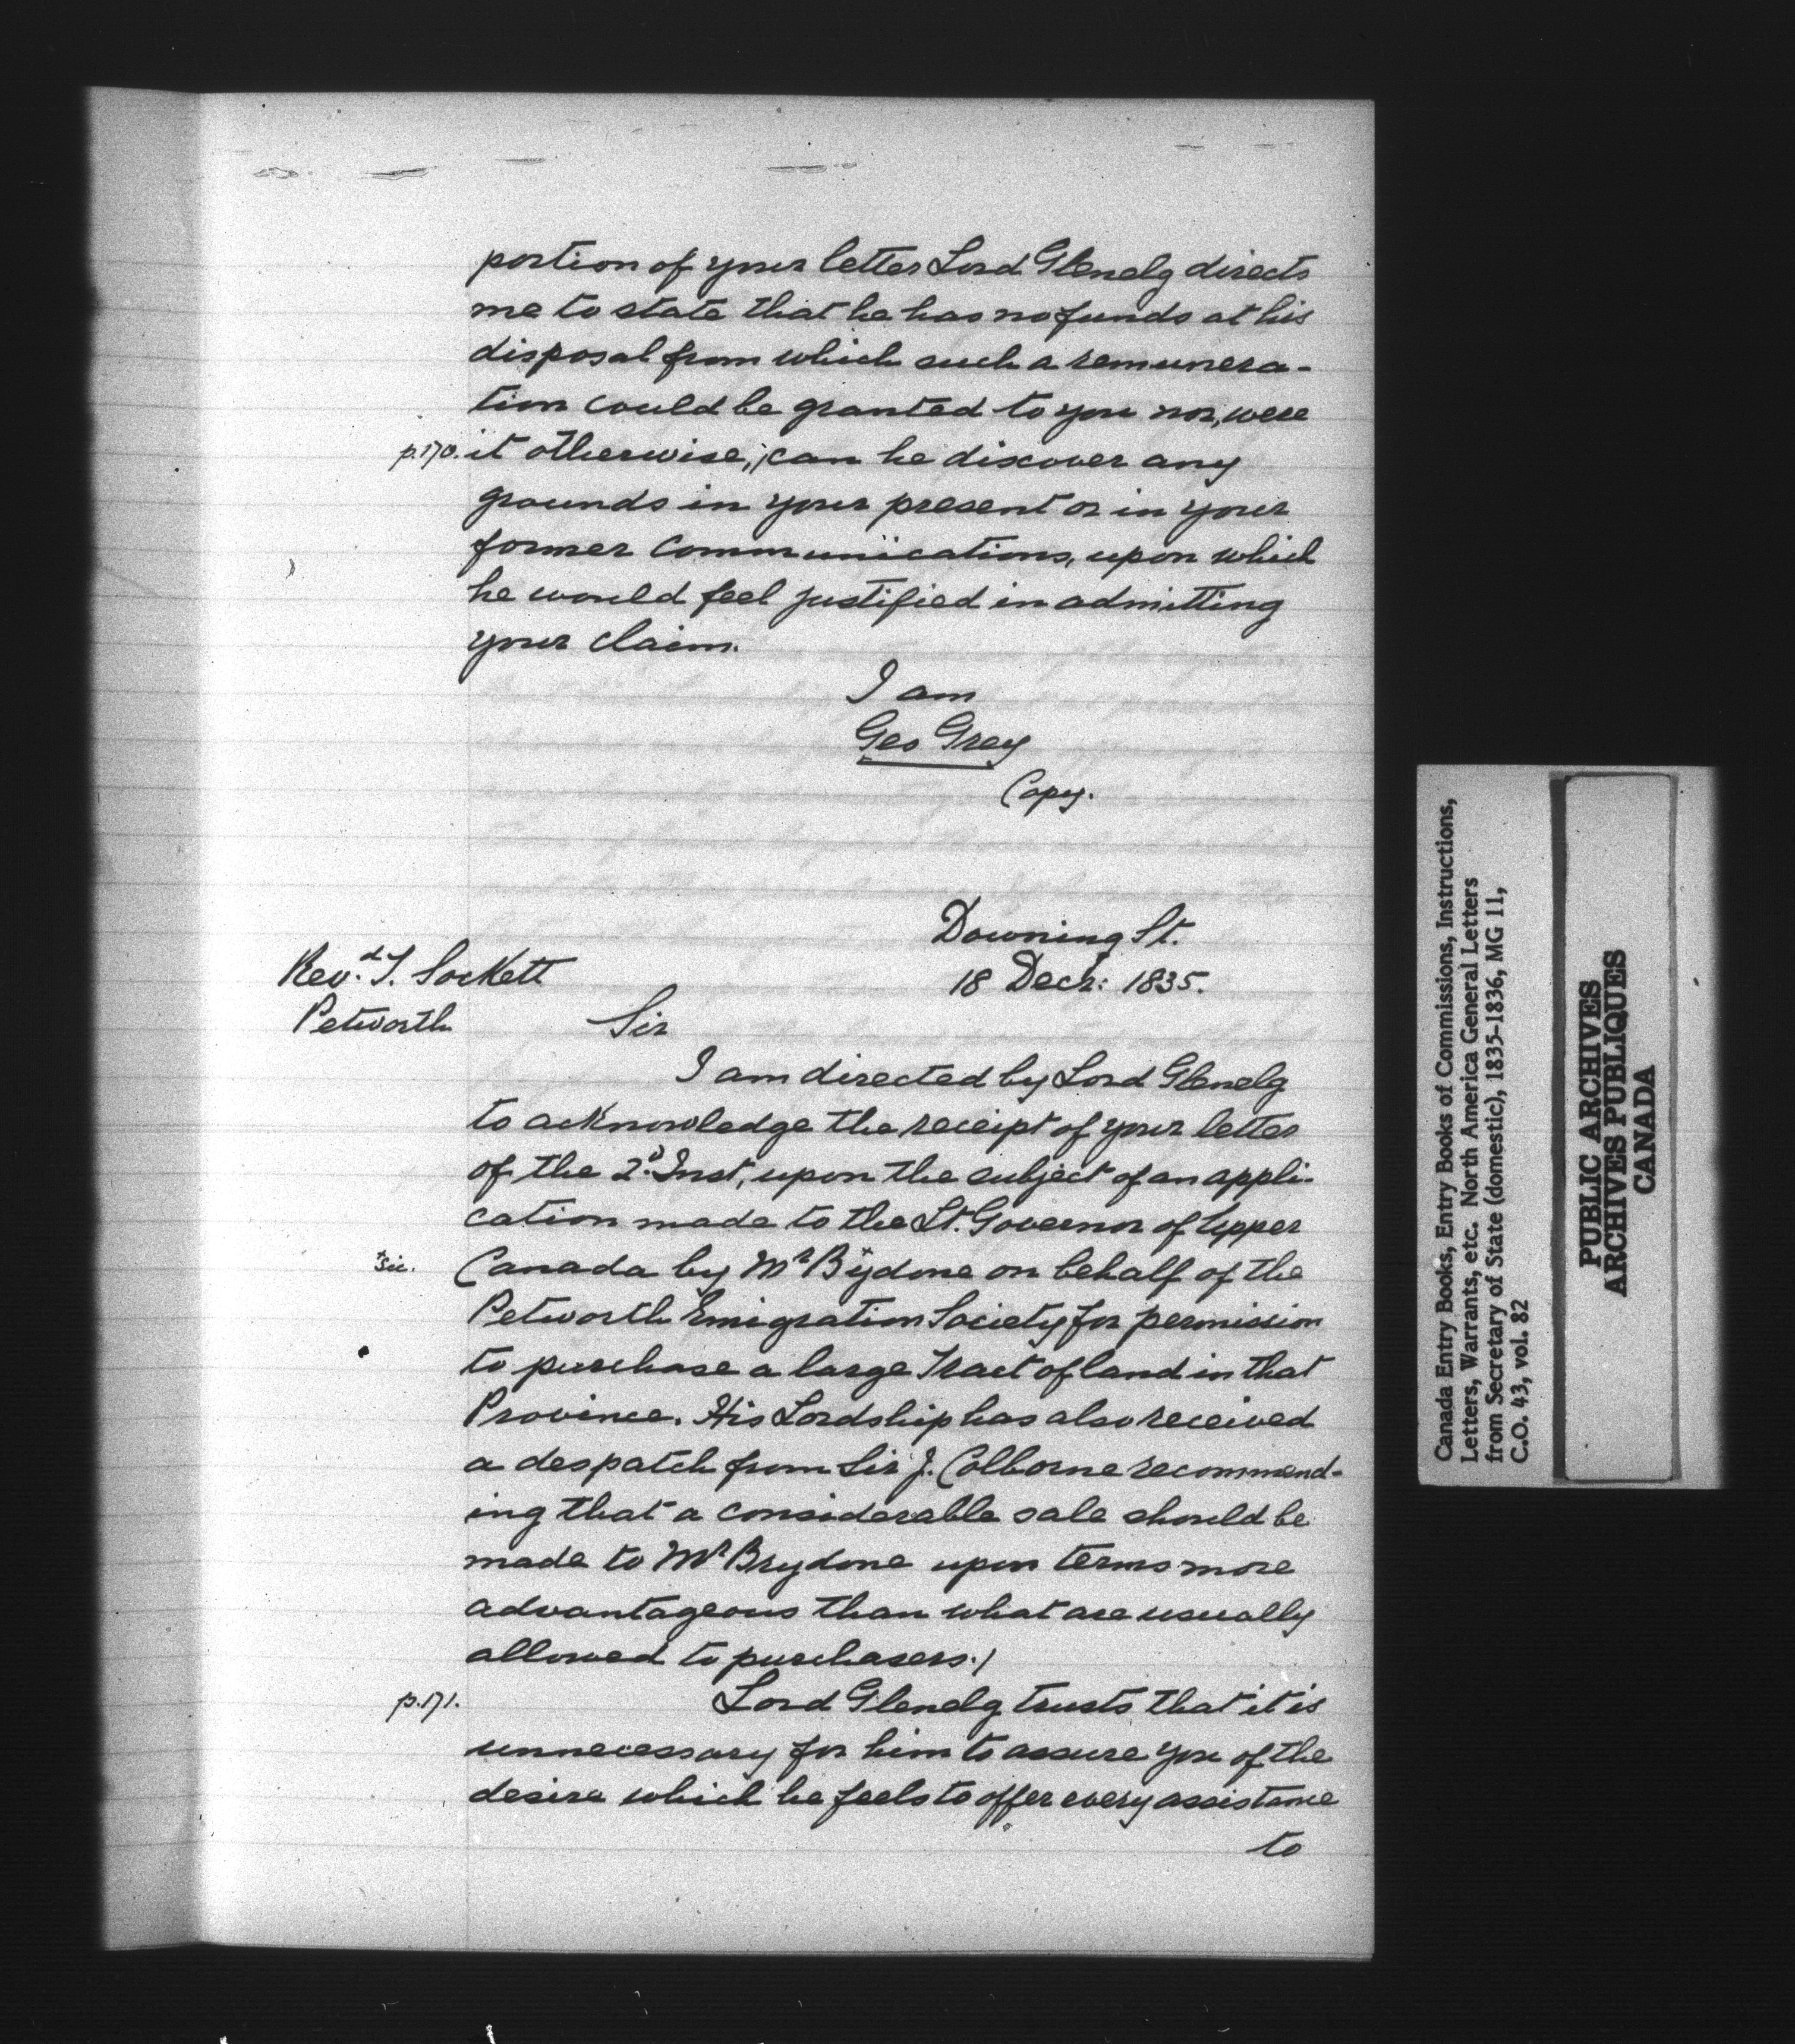 portion of your letter Lord Glenelg directs
me to state that he has no funds at his
disposal from which such a remunera-
tion could be granted to you nor, were
p.170. it otherwise, / can he discover any
grounds in your present or in your
former communications, upon which
he would feel justified in admitting
your claim.
I am
Geo Grey
Copy.
Downing St.
18 Decr: 1835.
Revd. T. Sockett
Petworth
Sir
I am directed by Lord Glenelg
to acknowledge the receipt of your letter
of the 2d. Inst, upon the subject of an appli-
cation made to the Lt. Governor of Upper
+sic. Canada by Mr B+ydone on behalf of the
Petworth Emigration Society for permission
to purchase a large Tract of land in that
Province. His Lordship has also received
a despatch from Sir J. Colborne recommend-
ing that a considerable sale should be
made to Mr Brydone upon terms more
advantageous than what are usually
allowed to purchasers. /
p.171. Lord Glenelg trusts that it is
unnecessary for him to assure you of the
desire which he feels to offer every assistance
to
Canada Entry Books, Entry Books of Commissions, Instructions,
Letters, Warrants, etc. North America General Letters
from Secretary of State (domestic), 1835-1836, MG 11,
C.O. 43, vol. 82
PUBLIC ARCHIVES
ARCHIVES PUBLIQUES
CANADA